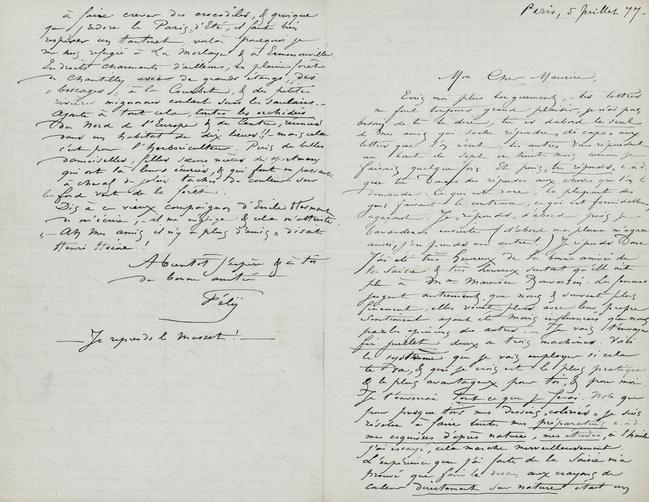 Paris, 5 Juillet 77.
Mon Cher Maurice,
Ecris moi plus longuement, tes lettres
me font toujours grand plaisir, je n'ai pas
besoin de te le dire, tu es d'abord le seul
de mes amis qui sache répondre, de capo, aux
lettres que l'on écrit, les autres vous répondent
au bout de sept ou huit mois comme je
faisais quelquefois. Et puis, tu réponds, c.à.d
que tu
demande, ce qui est rare, la plupart des
gens faisant le contraire, ce qui est formidablement
agaçant. Je réponds d'abord puis je
bavarderai ensuite
aussi, j'en prends un autre!) Je réponds Donc
J'ai été très heureux de la bonne arrivée de
la Saisie & très heureux surtout qu'elle ait
plu à Mme Maurice Bonvoisin. Les femmes
jugent autrement que nous & souvent plus
finement, elles voient plus avec leur propre
sentiment ayant été moins influencées que nous
par les opinions des autres. — Je vais t'envoyer
fin juillet deux à trois machines. Voici
le système que je vais employer si cela
te va, & que je crois est le plus pratique
& le plus avantageux pour toi, & pour moi.
Je t'enverrai tout ce que je ferai. Note que
pour presque tous mes dessins coloriés, je suis
résolu à faire toutes mes préparations c.à.d.
mes esquisses d'après nature, mes études, à l'huile
j'ai essayé, cela marche merveilleusement
L'expérience que j'ai faite de la Saisie m'a
prouvé que faire le dessin aux crayons de
couleur directement sur nature était un
à faire crever des crocodiles, & quoique
que j'adore le Paris d'Eté, il faut bien
respirer un tantinet, voilà pourquoi je
me suis réfugié à La Morlaye & à Ermenonville
Endroits charmants d'ailleurs, en pleine forêt
de Chantilly avec de grands étangs, des
"boscages" à la Courbet, & de petites
rivières mignonnes coulant sous les saulaies.
Ajoute à tout cela, toutes les orchidées
Du Nord de l'Europe & du Centre, réunies
dans un habitat de dix lieues!! mais cela
c'est pour l'herboriculteur. Puis de belles
damoiselles, filles sœurs nièces de sportmen,
qui ont là leurs écuries, & qui font en passant
à cheval de jolies taches de couleur sur
le fond vert de la forêt.
Dis à ce vieux compagnon d'Emile Hermant
de m'écrire, il me néglige & cela m'attriste.
"Ah mes amis il n'y a plus d'amis" disait
Henri Heine!
A bientôt j'espère & à toi
de bonne amitié
Fély
— Je reprends le Musset! —